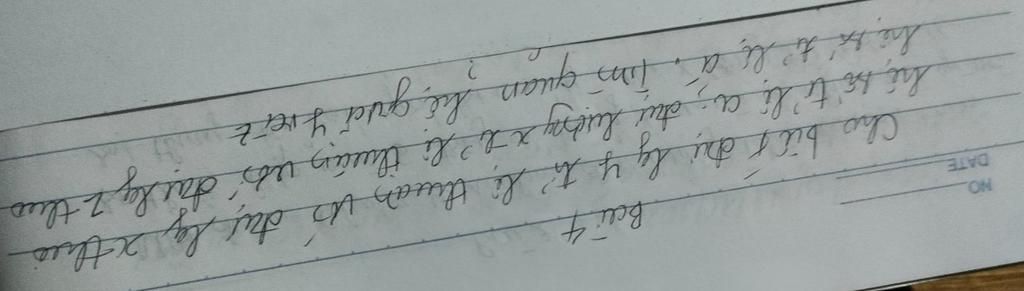 NO
DATE
Bài 4
Cho biết đại lg y tỉ lệ thuận vs đại lg x theo
hệ số tỉ lệ a; đại lượng x tỉ lệ thuận với đại lg z theo
hệ số tỉ lệ a. Tìm quan hệ giữa y và z
?